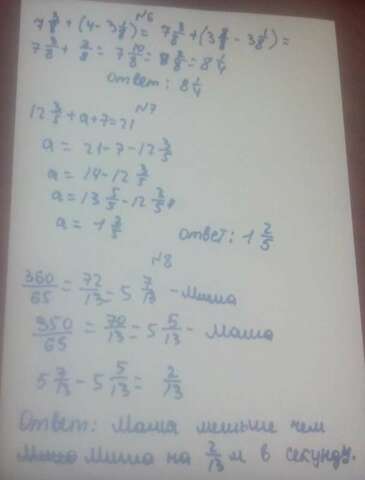 №6
7 3/8 + (4 - 3 1/8) = 7 3/8 + (3 8/8 - 3 1/8) =
7 3/8 + 7/8 = 7 10/8 = 8 2/8 = 8 1/4
ответ: 8 1/4
№7
12 3/5 + a + 7 = 21
a = 21 - 7 - 12 3/5
a = 14 - 12 3/5
a = 13 5/5 - 12 3/5
a = 1 2/5 ответ: 1 2/5
№8
360/65 = 72/13 = 5 7/13 - Миша
350/65 = 70/13 = 5 5/13 - Маша
5 7/13 - 5 5/13 = 2/13
Ответ: Маша меньше чем
Миша на 2/13 м в секунду.